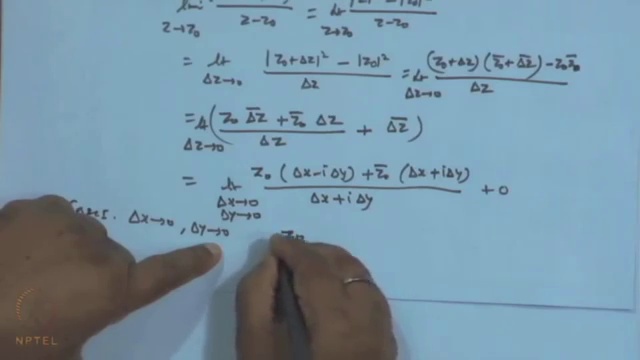 lim z→z₀ z-z₀ = lt z→z₀ z-z₀
= lt Δz→0 |z₀+Δz|² - |z₀|² / Δz = lt Δz→0 (z₀+Δz)(z̄₀+Δ̄z̄)-z₀z̄₀ / Δz
= lt Δz→0 ( z₀ Δ̄z̄ + z̄₀ Δz / Δz + Δ̄z̄ )
= lt Δx→0 Δy→0 z₀ (Δx-iΔy)+z̄₀ (Δx+iΔy) / Δx+iΔy + 0
Case I. Δx→0, Δy→0 z₀
NPTEL